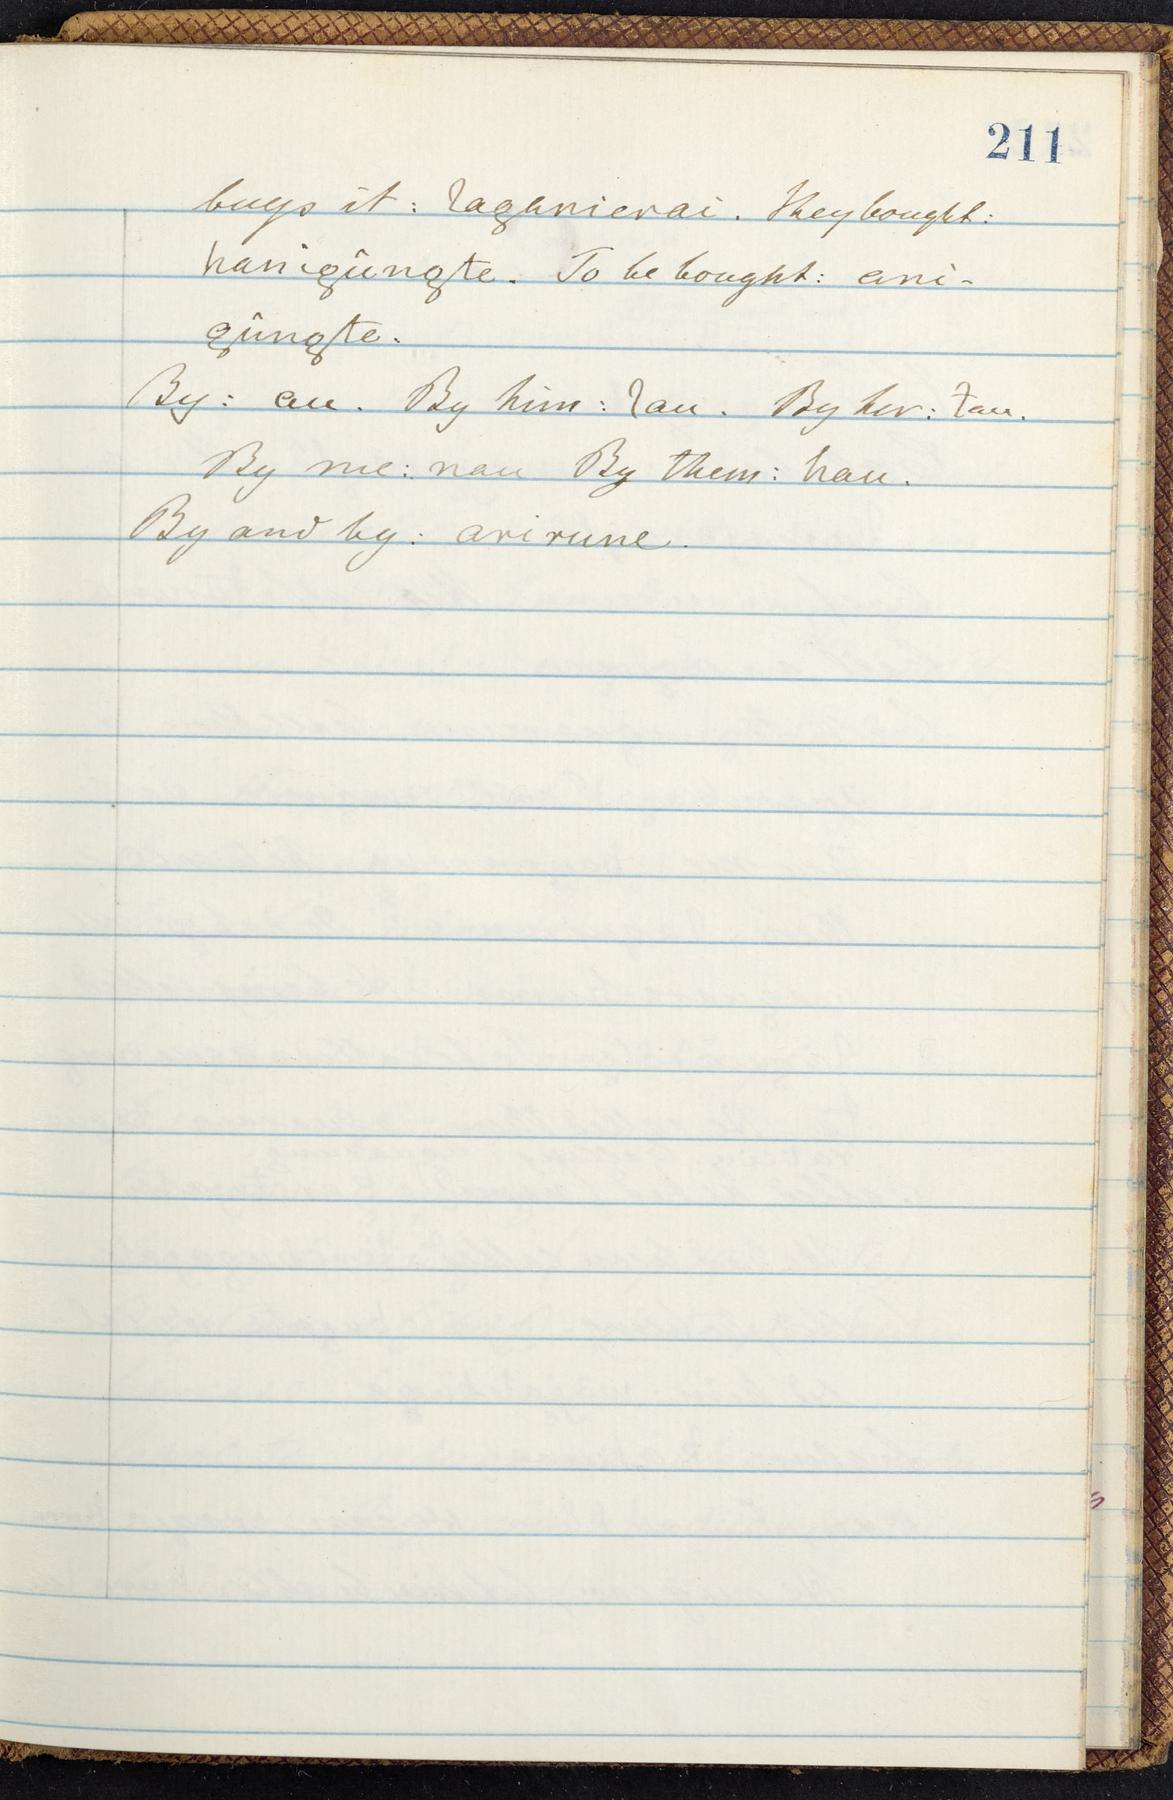 211
buys it: lagunierai. They bought:
hanigûngte. To be bought: ani-
gûngte.
By: au. By him: lau. By her: tau.
By me: nau By them: hau.
By and by: arirune.